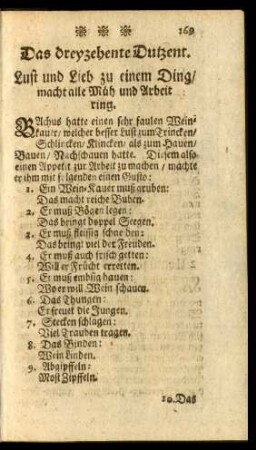 * * * 169
Das dreyzehente Dutzent.
Lust und Lieb zu einem Ding/
macht alle Müh und Arbeit
ring.
BAchus hatte einen sehr faulen Wein-
kauer/ welcher besser Lust zum Trincken/
Schlincken/ Klincken/ als zum Hauen/
Bauen/ Nachschauen hatte. Diesem also
einen Appetit zur Arbeit zu machen/ machte
er ihm mit folgenden einen Gusto:
1. Ein Wein-Kauer muß gruben:
Das macht reiche Buben.
2. Er muß Bögen legen:
Das bringt doppel Seegen.
3. Er muß fleissig schneiden:
Das bringt viel der Freuden.
4. Er muß auch frisch jetten:
Will er Frücht erretten.
5. Er muß embsig hauen:
Wo er will Wein schauen.
6. Das Thungen:
Erfreuet die Jungen.
7. Stecken schlagen:
Viel Trauben tragen.
8. Das Binden:
Wein Linden.
9. Abgipffeln:
Most Zipffeln.
10. Das